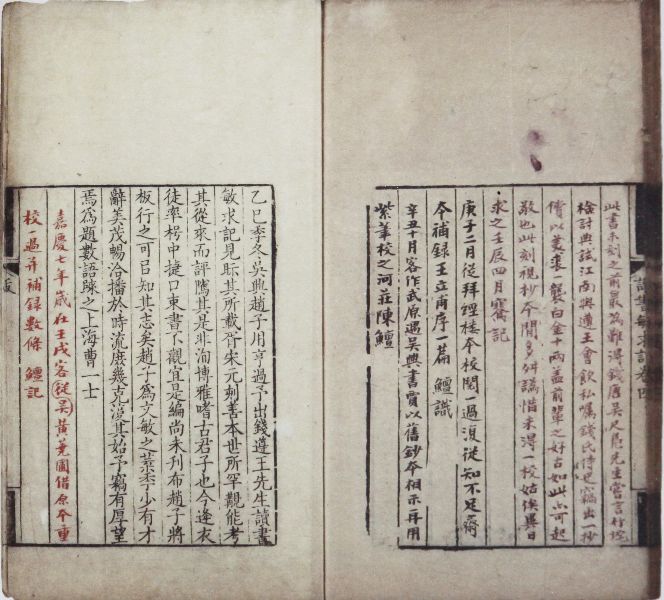 讀書敏求記卷四
此書未刻之前最為難得錢唐吳尺鳧先生嘗言竹垞
檢討典試江南與遵王會飲私囑錢氏侍史竊出一抄
償以美裘一襲白金十兩蓋前輩之好古如此亦可起
敬也此刻視抄本間多舛譌惜未得一校姑俟異日
求之壬辰四月齋記
庚子二月從拜經樓本校閱一過復從知不足齋
本補錄王立甫序一篇 鱣識
辛丑十月客作武原遇吳興書賈以舊鈔本相示再用
紫筆校之河莊陳鱣
乙巳季冬吳興趙子用亨過予出錢遵王先生讀書
敏求記見眎其所載胥宋元刻善本世所罕覯能考
其從來而評隲其是非洵博雅嗜古君子也今逢衣
徒率枵中捷口束書下觀宜是編尚未刋布趙子將
板行之可㠯知其志矣趙子為文敏之苗裔少有才
辭美茂暢洽播於時流庶幾克濟其始予竊有厚望
焉為題數語踈之上海曹一士
嘉慶七年歲在壬戌客從吳黃蕘圃借原本重
校一過并補錄數條 鱣記